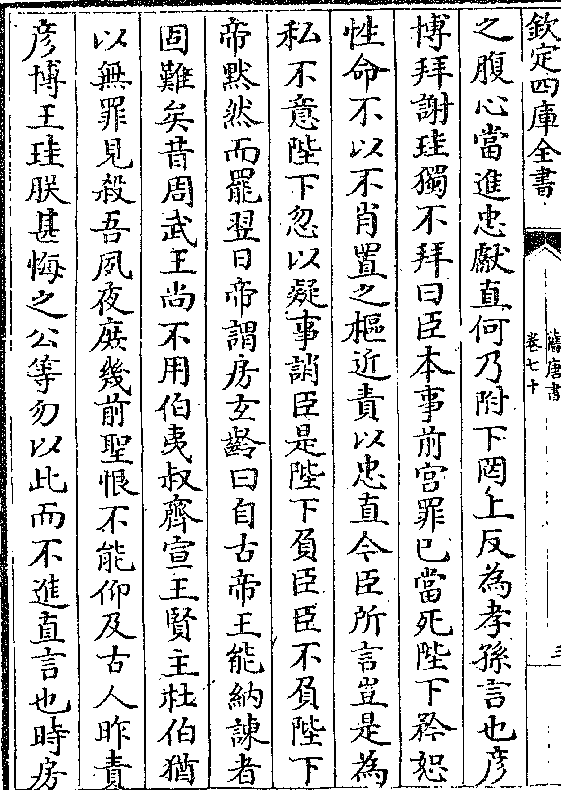 欽定四庫全書
舊唐書
卷七十
三
之腹心當進忠獻直何乃附下罔上反為孝孫言也彦
博拜謝珪獨不拜曰臣本事前宫罪已當死陛下矜恕
性命不以不肖置之樞近責以忠直今臣所言豈是為
私不意陛下忽以疑事誚臣是陛下負臣臣不負陛下
帝黙然而罷翌日帝謂房玄齡曰自古帝王能納諫者
固難矣昔周武王尚不用伯夷叔齊宣王賢主杜伯猶
以無罪見殺吾夙夜庶幾前聖恨不能仰及古人昨責
彦博王珪朕甚悔之公等勿以此而不進直言也時房